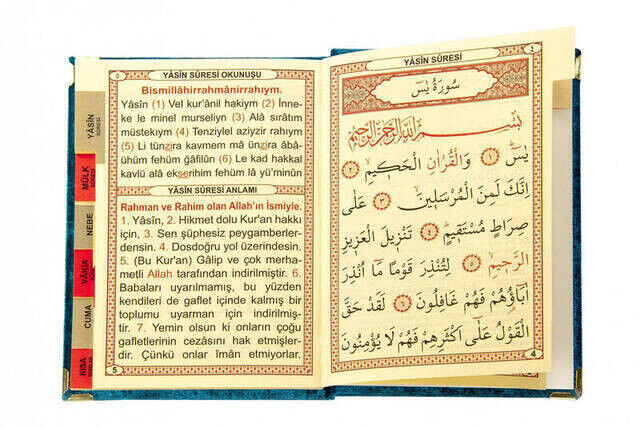 ٥
YÂSÎN SÛRESİ OKUNUŞU
Bismillâhirrahmânirrahıym.
Yâsîn (1) Vel kur'ânil hakiym (2) İnne-
ke le minel murseliyn (3) Alâ sırâtım
müstekıym (4) Tenziylel aziyzir rahıym
(5) Li tünzira kavmem mâ ünzira âbâ-
ühüm fehüm ğâfilûn (6) Le kad hakkal
kavlü alâ ekserihim fehüm lâ yü'minûn
YÂSÎN SÛRESİ ANLAMI
Rahman ve Rahim olan Allah'ın İsmiyle.
1. Yâsîn, 2. Hikmet dolu Kur'an hakkı
için, 3. Sen şüphesiz peygamberler-
densin. 4. Dosdoğru yol üzerindesin.
5. (Bu Kur'an) Gâlip ve çok merha-
metli Allah tarafından indirilmiştir. 6.
Babaları uyarılmamış, bu yüzden
kendileri de gaflet içinde kalmış bir
toplumu uyarman için indirilmiş-
tir. 7. Yemin olsun ki onların çoğu
gafletlerinin cezasını hak etmişler-
dir. Çünkü onlar îmân etmiyorlar.
5
YÂSÎN
SÛRESİ
MÜLK
SÛRESİ
NEBE
VÂKIA
CUMA
KISA
YÂSÎN SÛRESİ
٤
سُورَةُ يٰسٓ
بِسْمِ اللّٰهِ الرَّحْمٰنِ الرَّحِيمِ
يٰسٓ ﴿١﴾ وَالْقُرْاٰنِ الْحَكِيمِ ﴿٢﴾
اِنَّكَ لَمِنَ الْمُرْسَلِينَ ﴿٣﴾ عَلٰى
صِرَاطٍ مُسْتَقِيمٍ ﴿٤﴾ تَنْزِيلَ الْعَزِيزِ
الرَّحِيمِ ﴿٥﴾ لِتُنْذِرَ قَوْمًا مَٓا اُنْذِرَ
اٰبَٓاؤُهُمْ فَهُمْ غَافِلُونَ ﴿٦﴾ لَقَدْ حَقَّ
الْقَوْلُ عَلٰٓى اَكْثَرِهِمْ فَهُمْ لَا يُؤْمِنُونَ
4